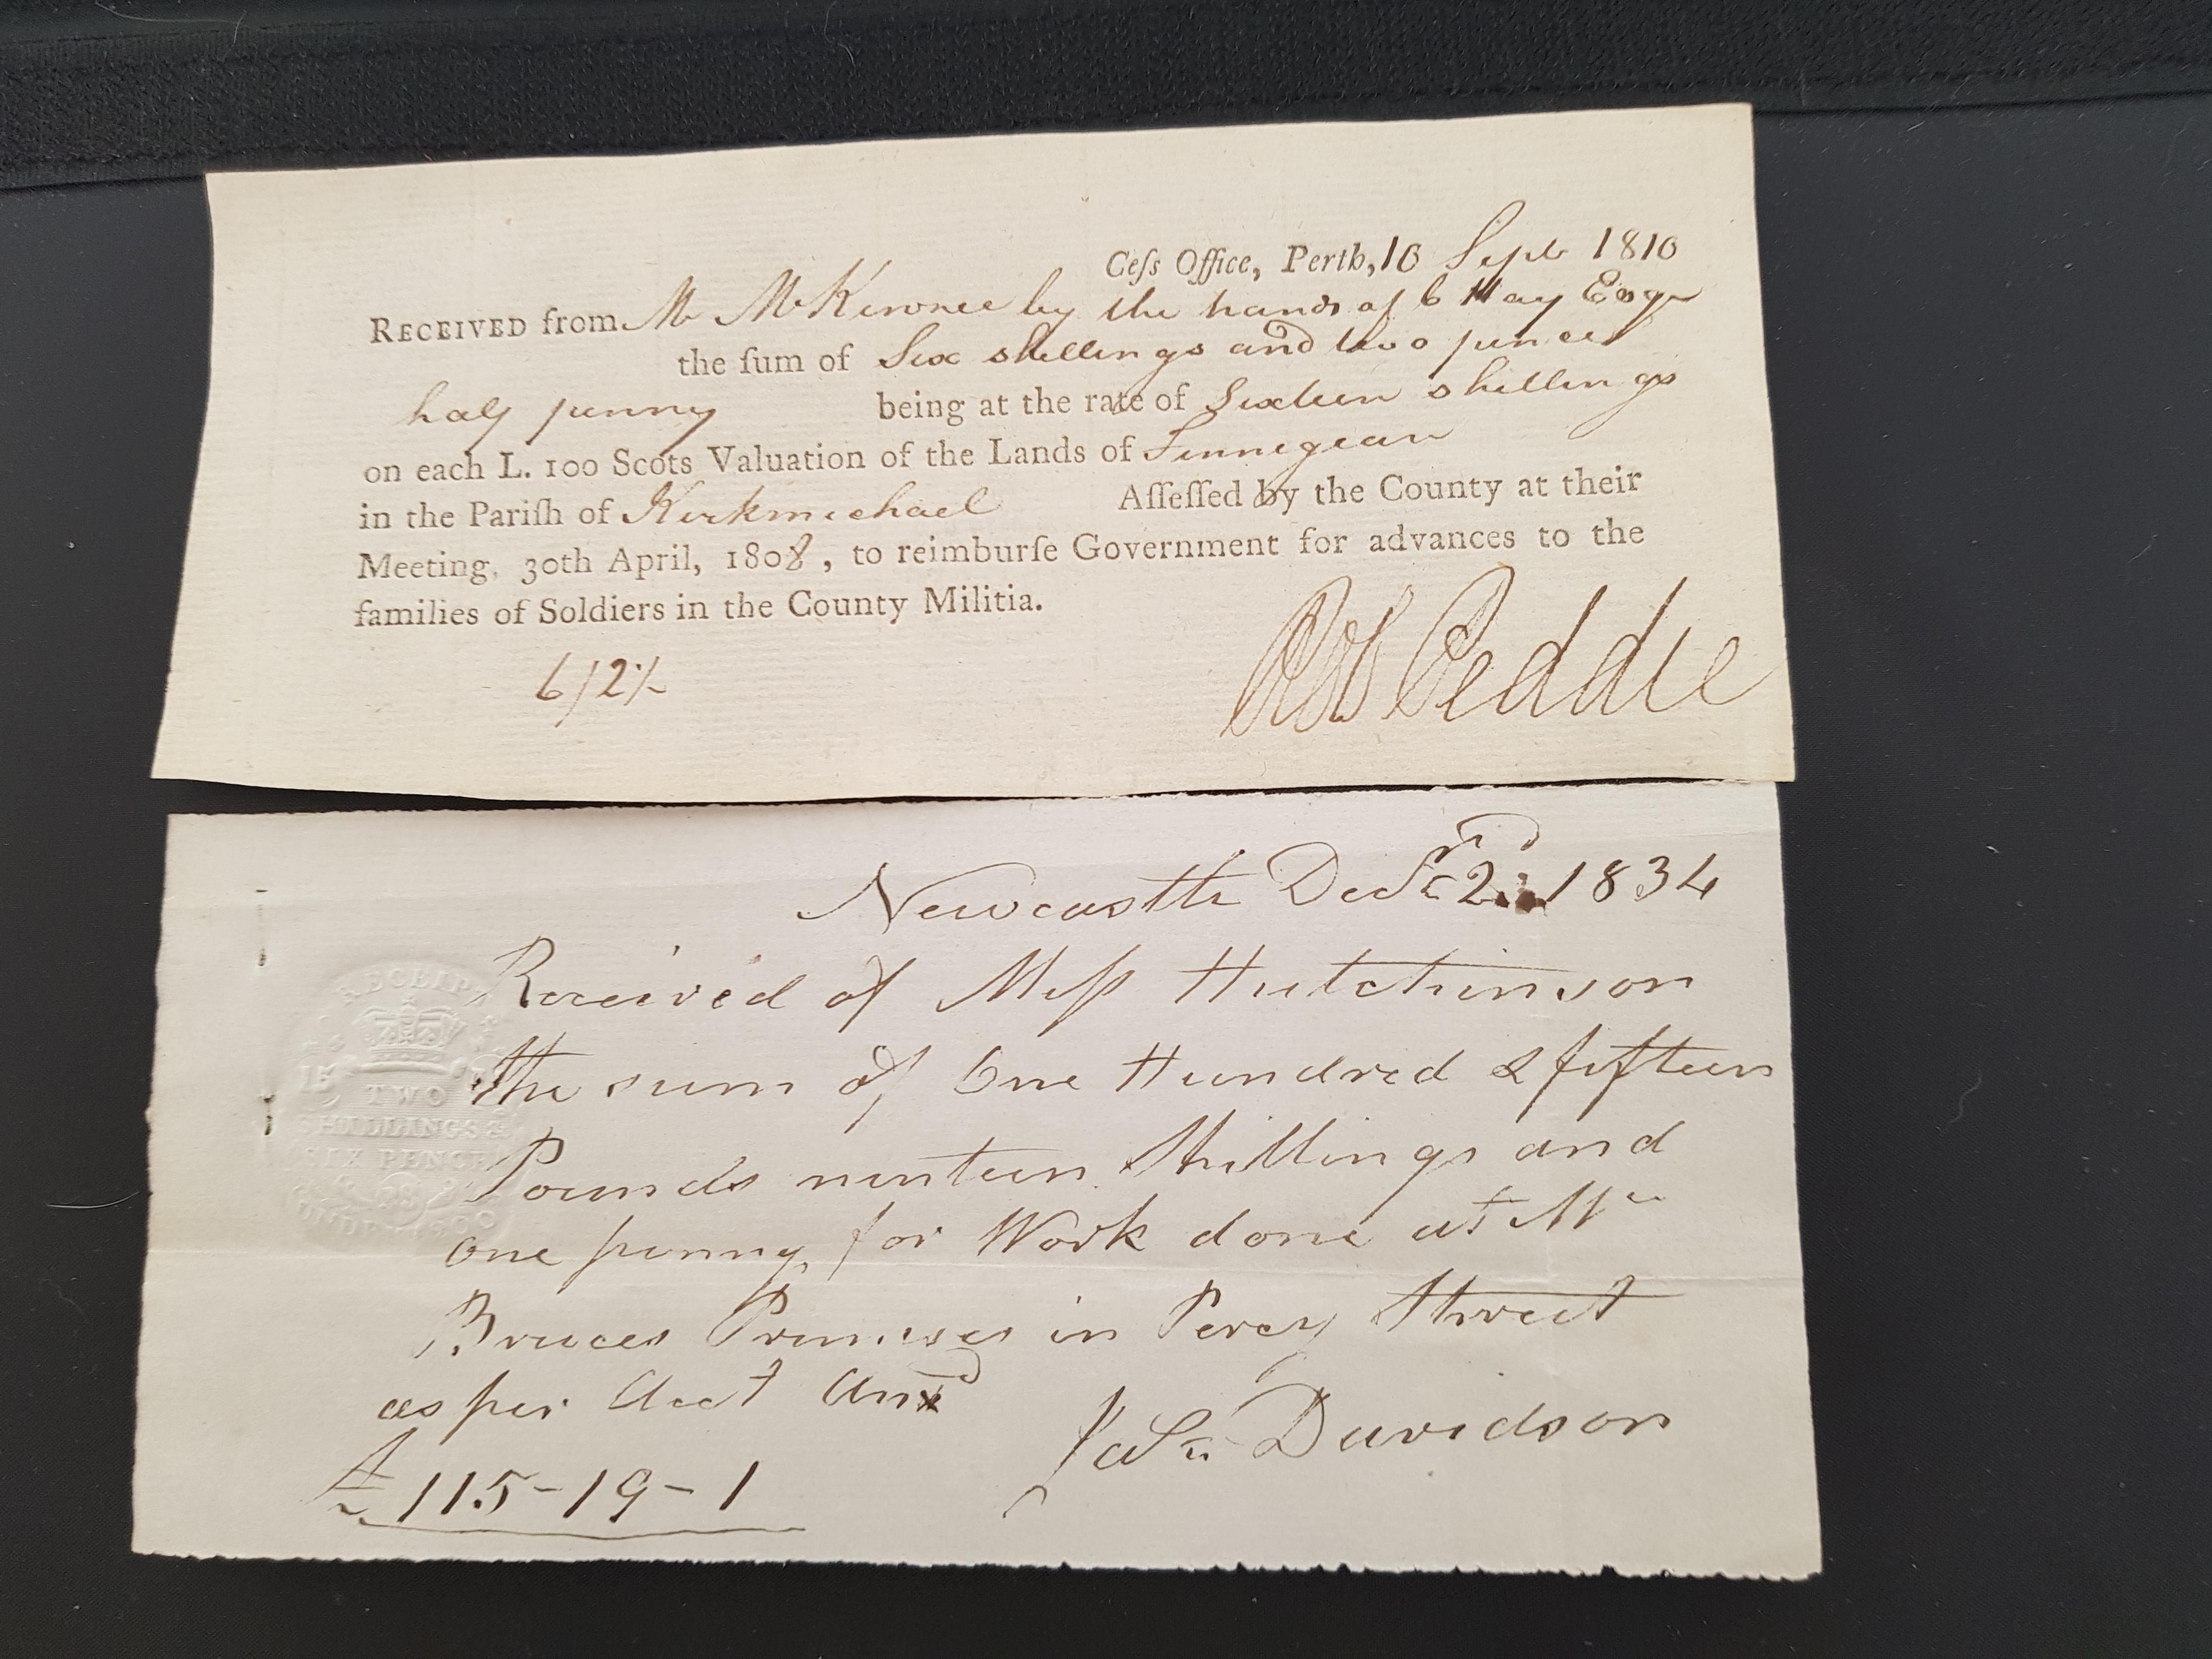 Ceſs Office, Perth, 10 Sept 1810
RECEIVED from Mr McKewnee by the hands of C Hay Esqr
the ſum of Six shillings and two pence
half penny being at the rate of Sixteen shillings
on each L. 100 Scots Valuation of the Lands of Sinnegean
in the Pariſh of Kirkmichael Aſſeſſed by the County at their
Meeting, 30th April, 1808, to reimburſe Government for advances to the
families of Soldiers in the County Militia.
6/2½
Rob Peddie
Newcastle Decr 2nd 1834
Received of Messrs Hutchinson
the sum of One Hundred & fifteen
Pounds ninteen Shillings and
one penny, for Work done at Mr
Bruces Premises in Percy Street
as per Acct
Jas. Davidson
£115-19-1
RECEIPT
TWO
SHILLINGS &
SIX PENCE